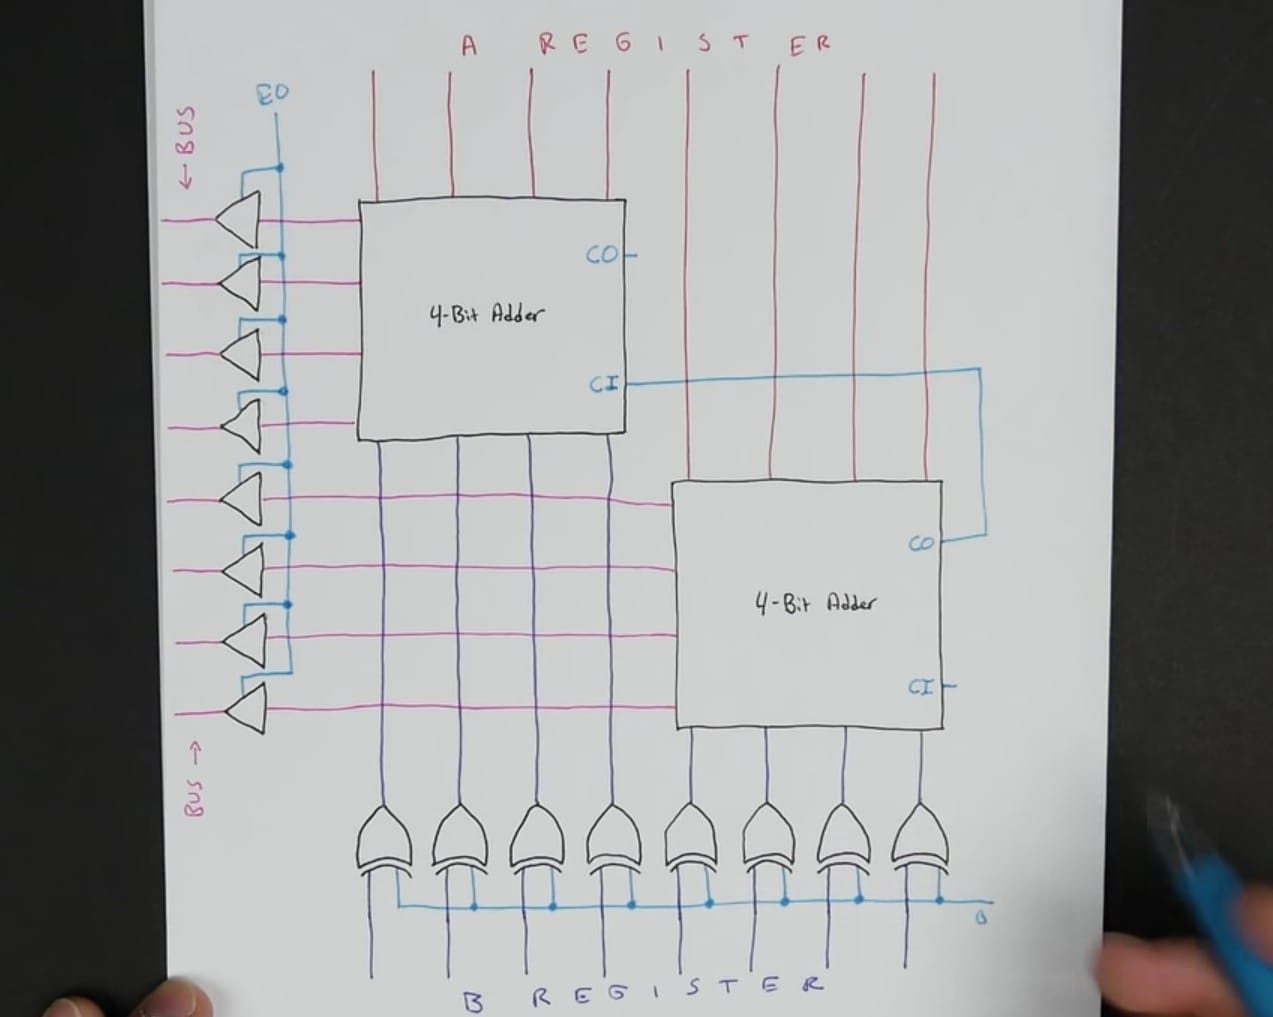 A REGISTER
EO
← BUS
CO
4-Bit Adder
CI
CO
4-Bit Adder
CI
BUS →
0
B REGISTER